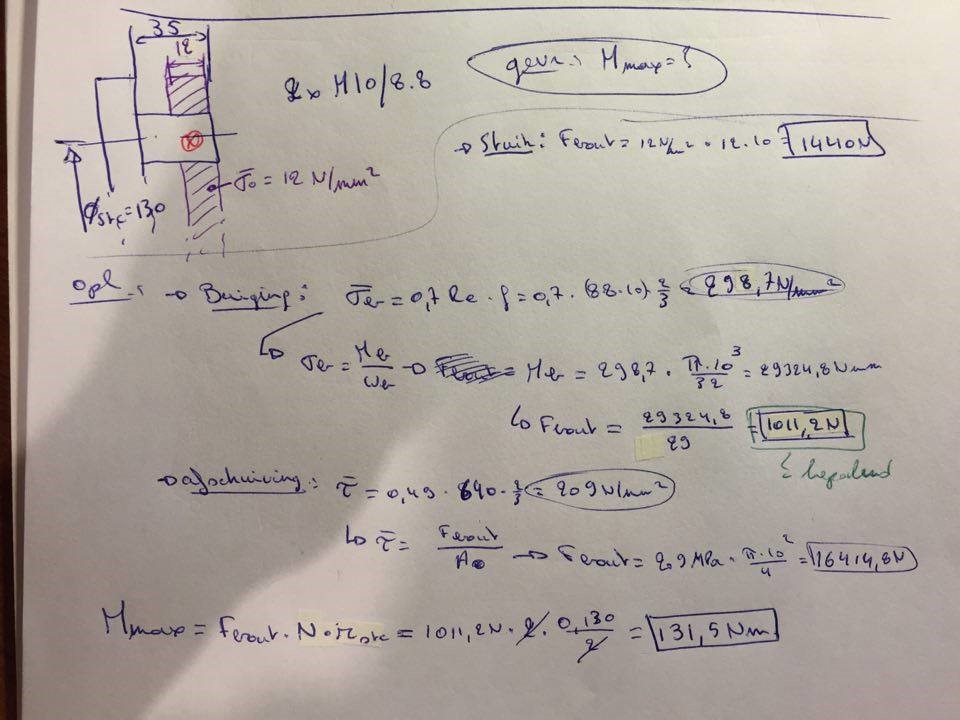 35
12
2x M10/8.8
gevr.: Mmax = ?
→ Stuik: Fbout = 12N/mm² · 12 · 10 = 1440N
σ̄o = 12 N/mm²
østc = 130
Opl.: → Buiging: σ̄b = 0,7 Re · f = 0,7 · (88·10) 2/3 = 298,7N/mm²
↳ σb = Mb/Wb → = Mb = 298,7 · π·10³/32 = 29324,8 Nmm
↳ Fbout = 29324,8/29 = 1011,2N
↳ bepalend
→ afschuiving: τ̄ = 0,49 · 640 · 2/3 = 209 N/mm²
↳ τ̄ = Fbout/A → Fbout = 209 MPa · π·10²/4 = 16414,8N
Mmax = Fbout · N · rstc = 1011,2N · 2 · 0,130/2 = 131,5Nm